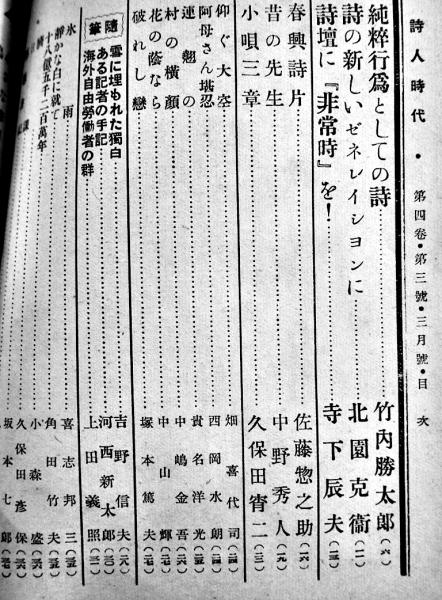 詩人時代・第四卷・第三號・三月號・目次
純粹行爲としての詩……竹内勝太郎（六）
詩の新しいゼネレイションに……北園克衞（一一）
詩壇に『非常時』を！……寺下辰夫
春興詩片……佐藤惣之助
昔の先生……中野秀人
小唄三章……久保田宵二
仰ぐ大空……畑喜代司
阿母さん堪忍……西岡水朗
連翹の……貴名洋光
村の横顔……中嶋金吾
花の蔭なら……中山輝
破れし戀……塚本篤夫
隨筆
雪に埋もれた獨白……吉野信夫
ある記者の手記……河西新太郎
海外自由勞働者の群……上田義照
氷雨……喜志邦三
靜かな白に就て……角田竹夫
十八億五千二百萬年……小森盛
久保田彥保
坂本七郎